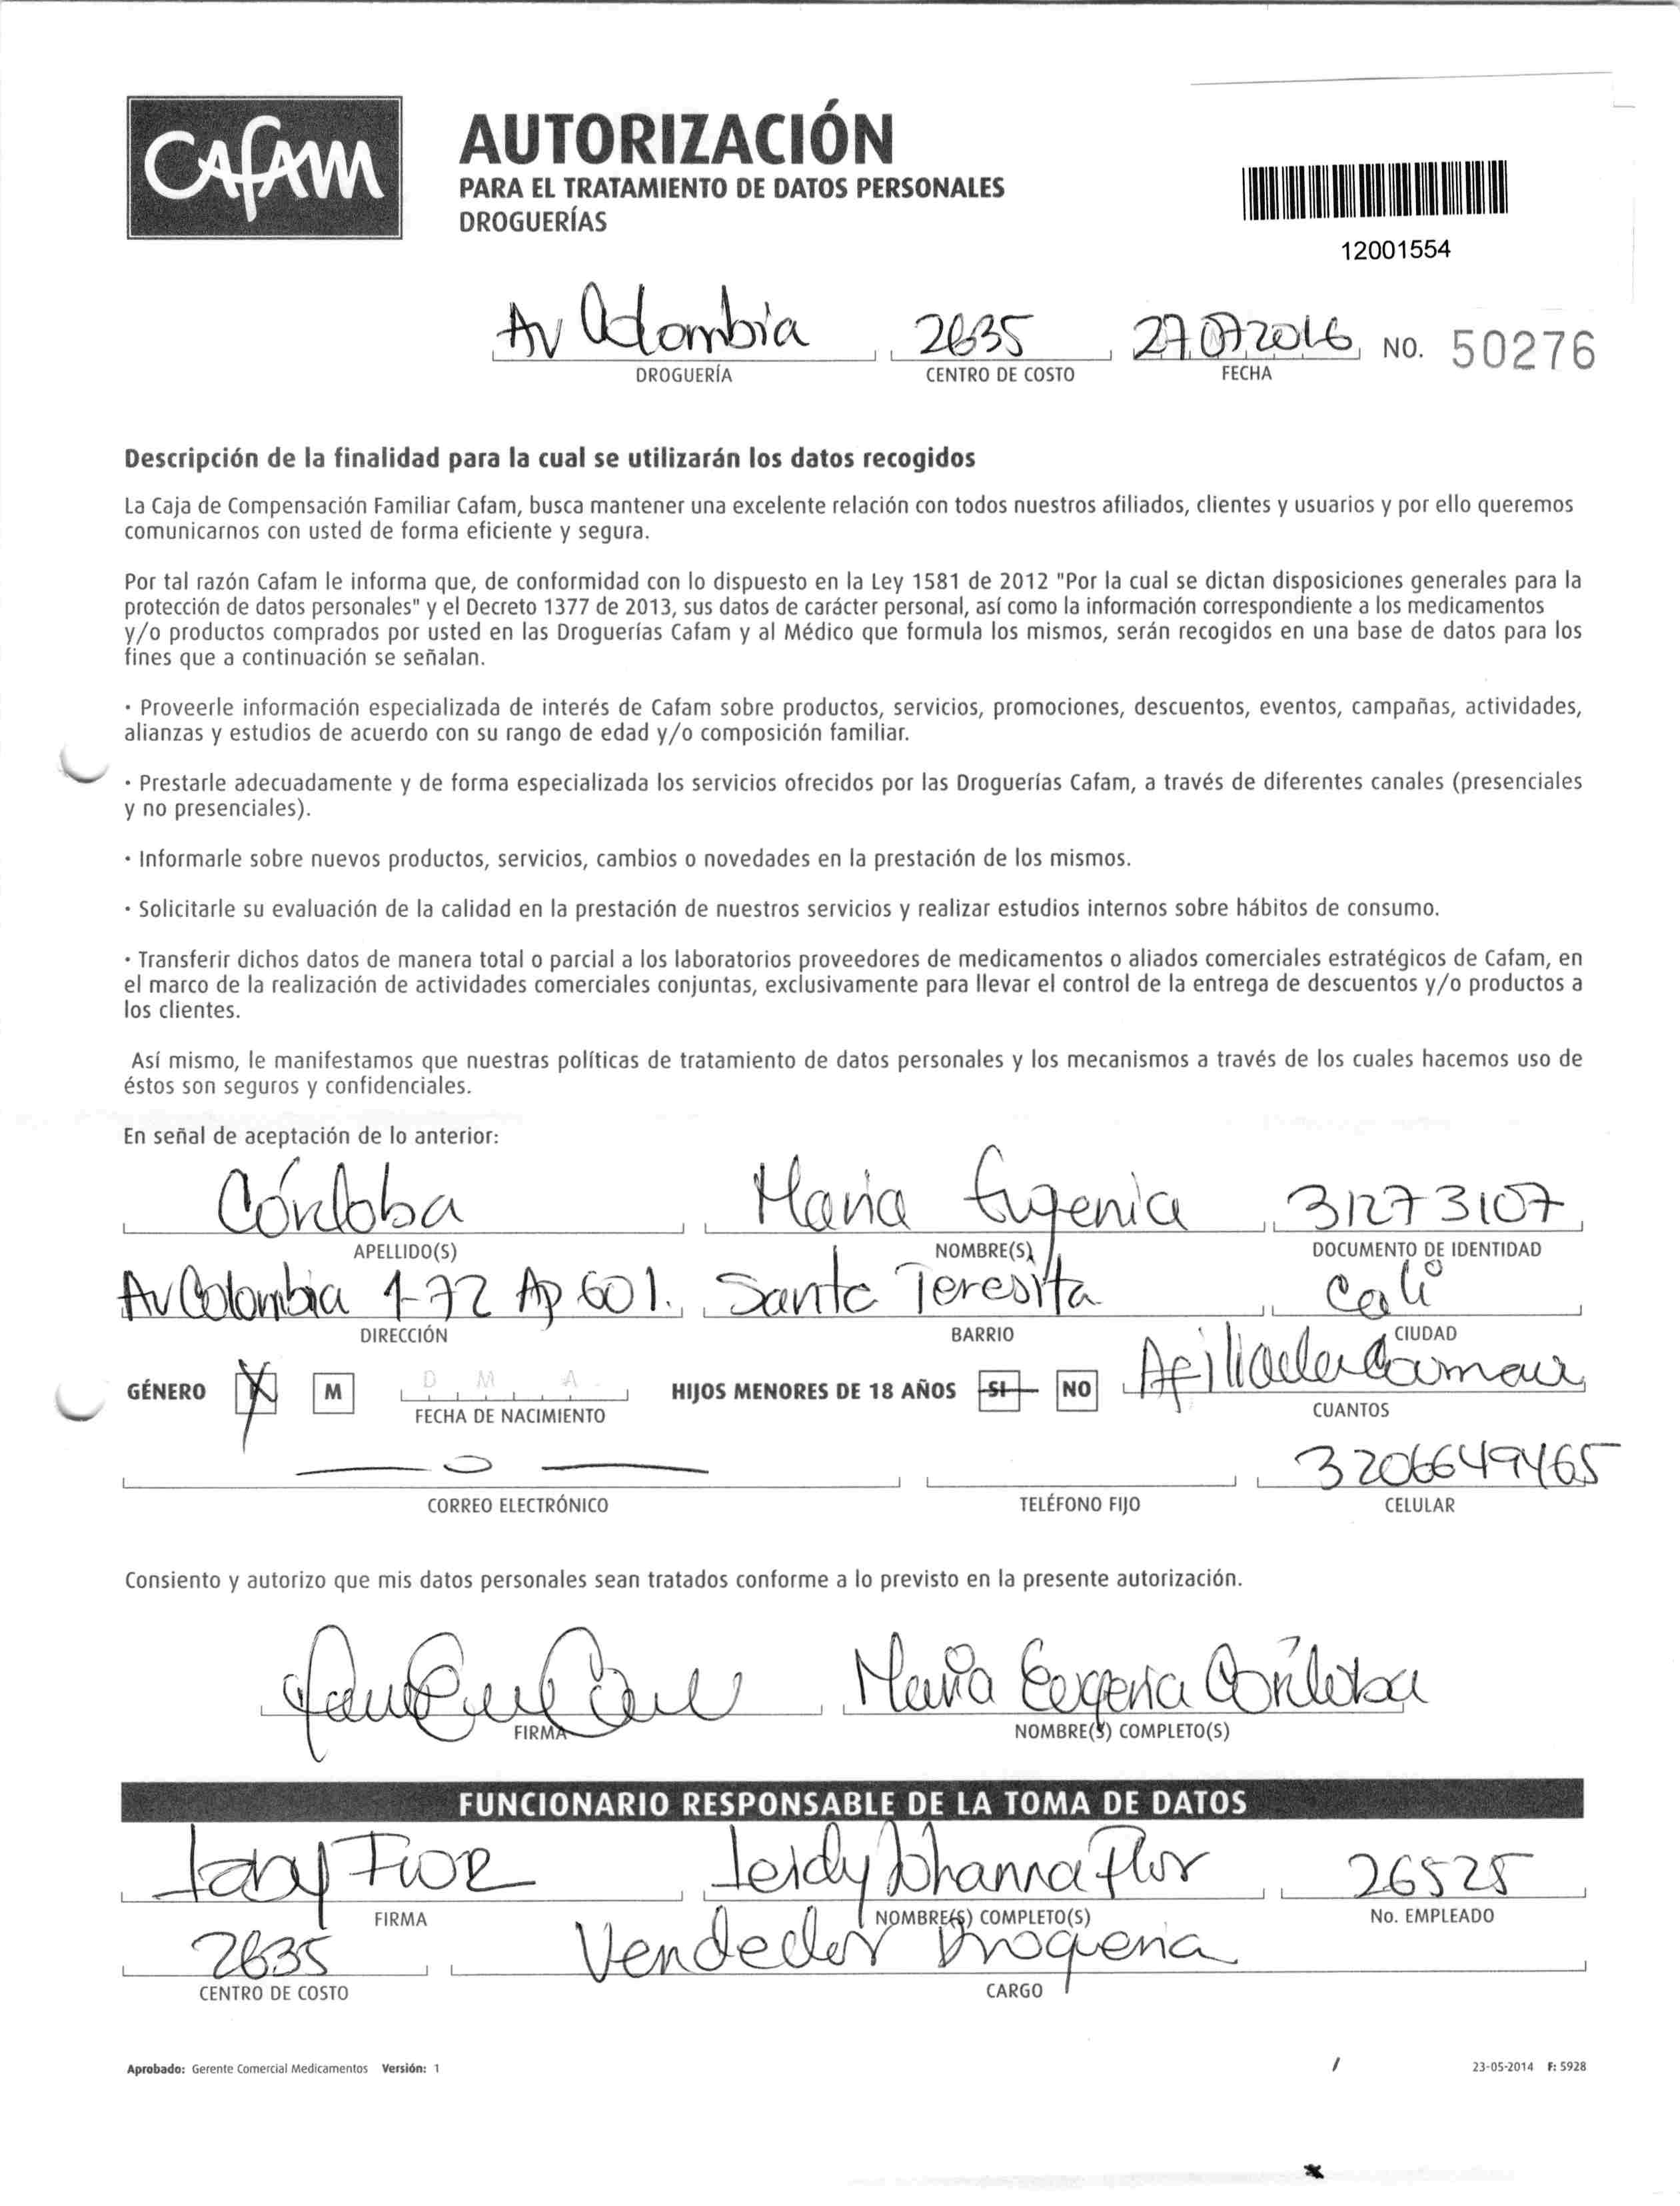 CAFAM
AUTORIZACIÓN
PARA EL TRATAMIENTO DE DATOS PERSONALES
DROGUERÍAS
12001554
Av Colombia 2635 27 07 2016 NO. 50276
DROGUERÍA CENTRO DE COSTO FECHA
Descripción de la finalidad para la cual se utilizarán los datos recogidos
La Caja de Compensación Familiar Cafam, busca mantener una excelente relación con todos nuestros afiliados, clientes y usuarios y por ello queremos
comunicarnos con usted de forma eficiente y segura.
Por tal razón Cafam le informa que, de conformidad con lo dispuesto en la Ley 1581 de 2012 "Por la cual se dictan disposiciones generales para la
protección de datos personales" y el Decreto 1377 de 2013, sus datos de carácter personal, así como la información correspondiente a los medicamentos
y/o productos comprados por usted en las Droguerías Cafam y al Médico que formula los mismos, serán recogidos en una base de datos para los
fines que a continuación se señalan.
· Proveerle información especializada de interés de Cafam sobre productos, servicios, promociones, descuentos, eventos, campañas, actividades,
alianzas y estudios de acuerdo con su rango de edad y/o composición familiar.
· Prestarle adecuadamente y de forma especializada los servicios ofrecidos por las Droguerías Cafam, a través de diferentes canales (presenciales
y no presenciales).
· Informarle sobre nuevos productos, servicios, cambios o novedades en la prestación de los mismos.
· Solicitarle su evaluación de la calidad en la prestación de nuestros servicios y realizar estudios internos sobre hábitos de consumo.
· Transferir dichos datos de manera total o parcial a los laboratorios proveedores de medicamentos o aliados comerciales estratégicos de Cafam, en
el marco de la realización de actividades comerciales conjuntas, exclusivamente para llevar el control de la entrega de descuentos y/o productos a
los clientes.
Así mismo, le manifestamos que nuestras políticas de tratamiento de datos personales y los mecanismos a través de los cuales hacemos uso de
éstos son seguros y confidenciales.
En señal de aceptación de lo anterior:
Córdoba Maria Eugenia 31273107
APELLIDO(S) NOMBRE(S) DOCUMENTO DE IDENTIDAD
Av Colombia 1-72 Ap 601. Santa Teresita Cali
DIRECCIÓN BARRIO CIUDAD
GÉNERO M D M A HIJOS MENORES DE 18 AÑOS SI NO Afiliada
FECHA DE NACIMIENTO CUANTOS
3206649465
CORREO ELECTRÓNICO TELÉFONO FIJO CELULAR
Consiento y autorizo que mis datos personales sean tratados conforme a lo previsto en la presente autorización.
Maria Eugenia Córdoba
FIRMA NOMBRE(S) COMPLETO(S)
FUNCIONARIO RESPONSABLE DE LA TOMA DE DATOS
Leidy Johanna Flor 26525
FIRMA NOMBRE(S) COMPLETO(S) No. EMPLEADO
2635 Vendedor Drogueria
CENTRO DE COSTO CARGO
Aprobado: Gerente Comercial Medicamentos Versión: 1 23-05-2014 F: 5928